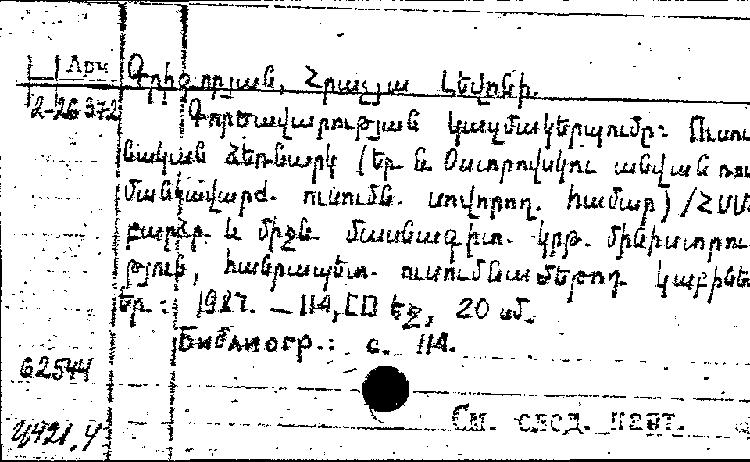 Арм
Գրիգորյան, Հրաչյա Լևոնի.
2-26372
Գործավարության կազմակերպումը: Ուսում
նական ձեռնարկ (Եր. և Օստրովսկու անվան ռուս
մանկավարժ. ուսումն. սովորող. համար) / ՀՍՍՀ
բարձր. և միջն. մասնագիտ. կրթ. մինիստրու
թյուն, հանրապետ. ուսումնամեթոդ. կաբինետ
Եր.: 1987. – 114, [1] էջ, 20 սմ.
Библиогр.: с. 114.
62544
См. след. карт.
Կ421.4